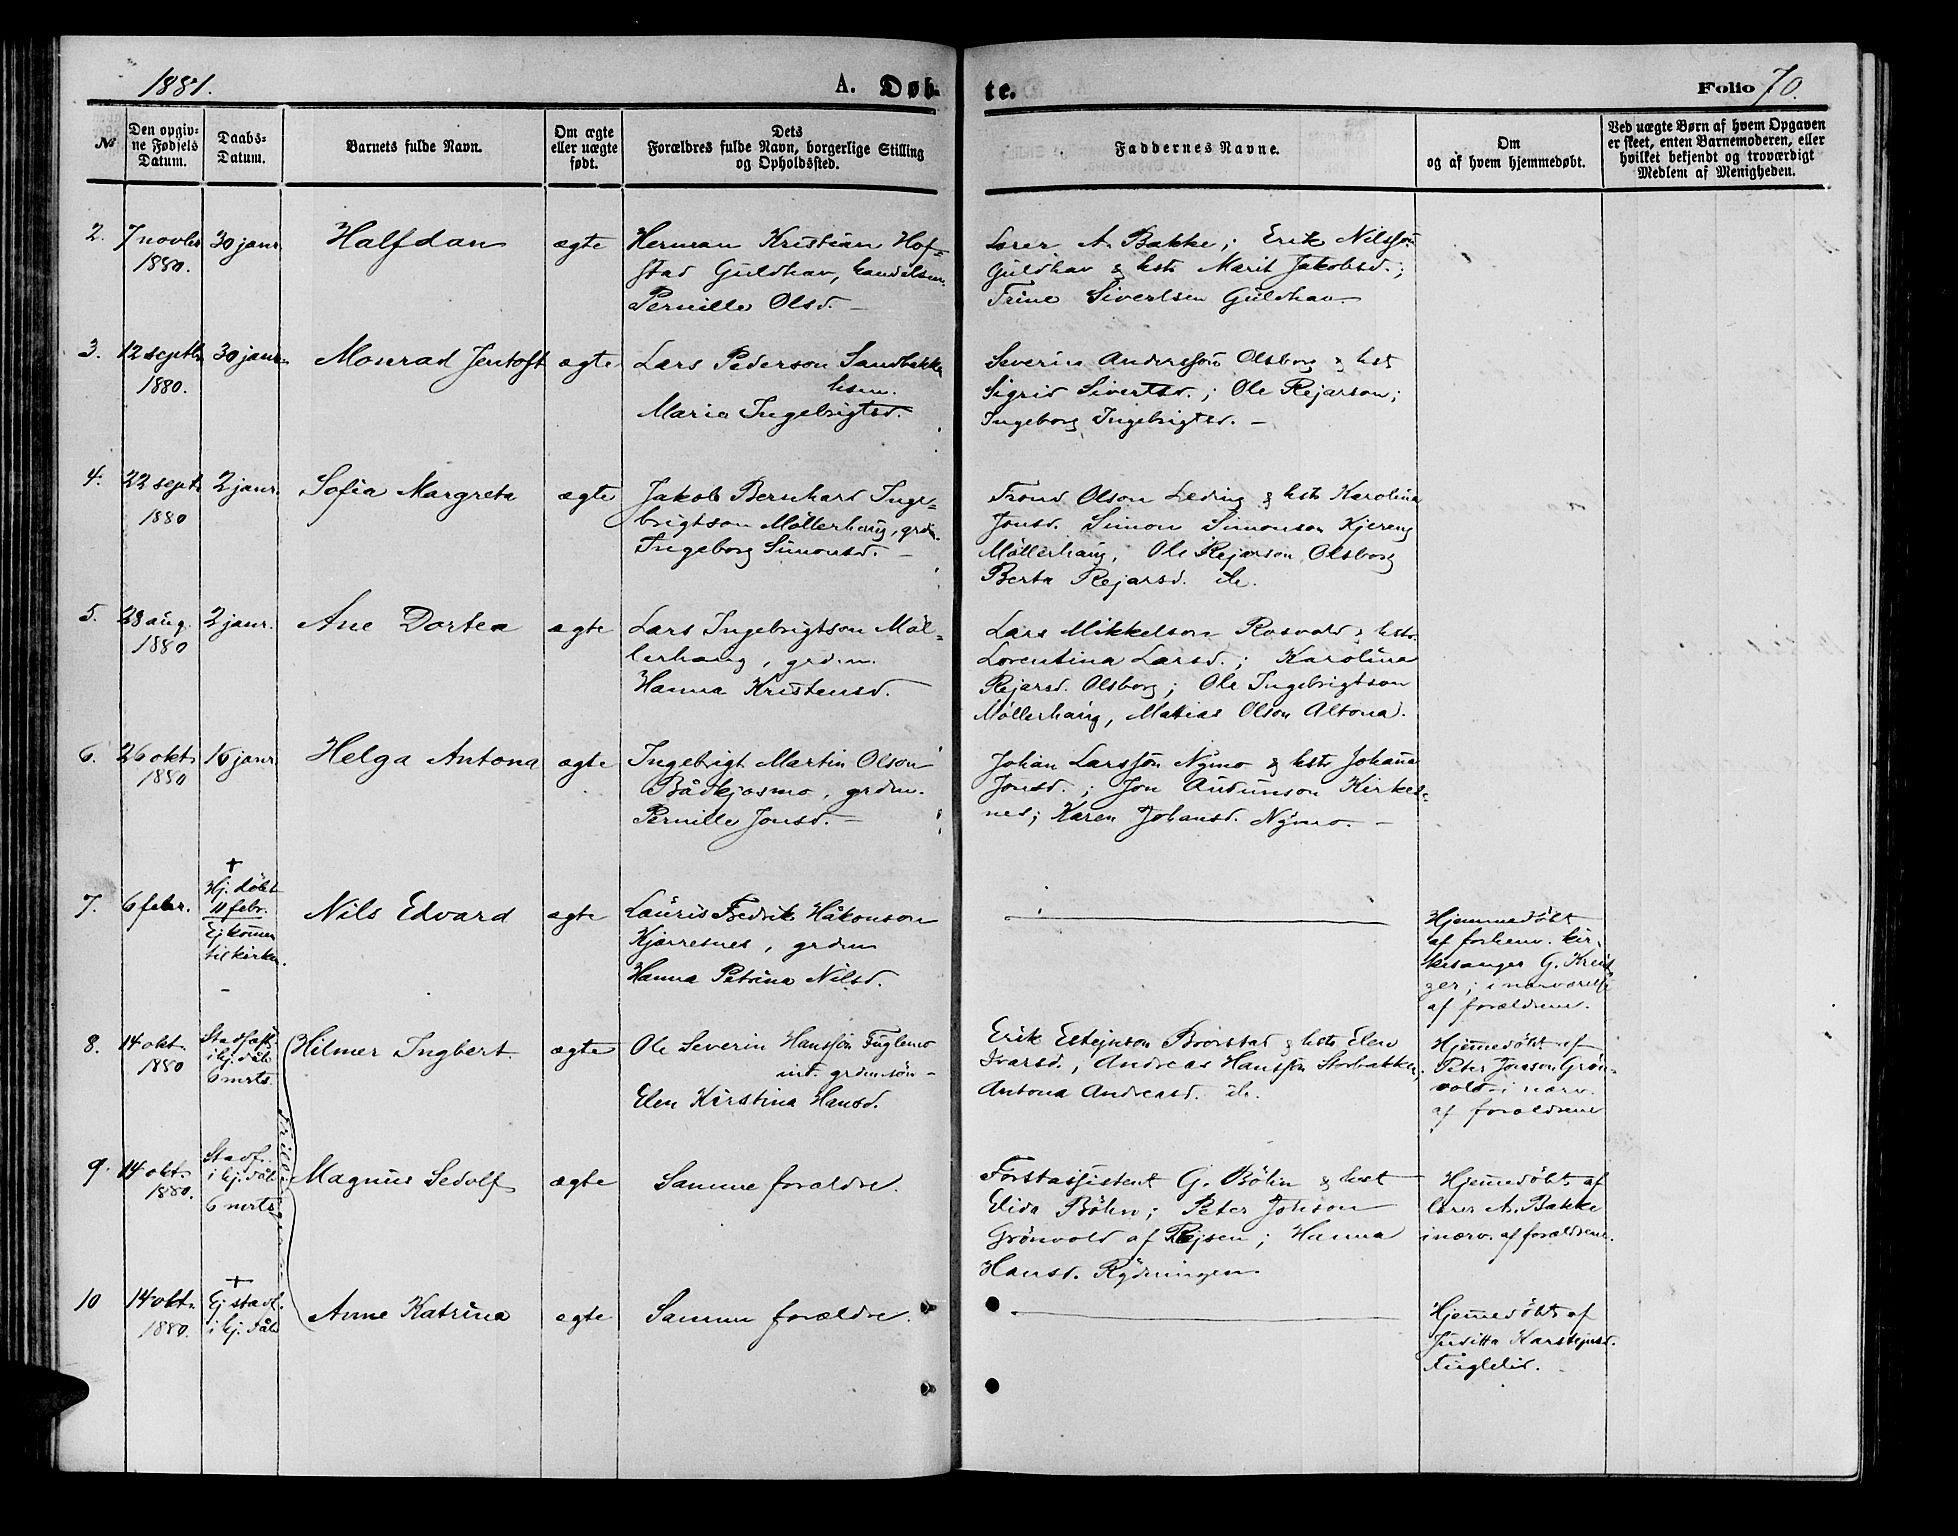 1881.
A. Døb-
te.
Folio 70.
No
Den opgiv-
ne Fødsels
Datum.
Daabs-
Datum.
Barnets fulde Navn.
Om ægte
eller uægte
født.
Dets
Forældres fulde Navn, borgerlige Stilling
og Opholdssted.
Faddernes Navne.
Om
og af hvem hjemmedøbt.
Ved uægte Børn af hvem Opgaven
er skeet, enten Barnemoderen, eller
hvilket bekjendt og troværdigt
Medlem af Menigheden.
2. 7 novbr 1880. 30 janr. Halfdan ægte
Herman Kristian Hof-
stad Guldhav, handelsm.
Pernille Olsd. —
Lærer A. Bakke; Erik Nilsson
Guldhav & hst Marit Jakobsd.;
Trine Sivertsen Guldhav. —
3. 12 septbr 1880. 30 janr. Monrad Jentoft ægte
Lars Pederson Sandbakke
hsm.
Maria Ingebrigtsd.
Severin Andersson Olsborg & hst
Sigrid Sivertsd.; Ole Rejarson;
Ingeborg Ingebrigtsd. —
4. 22 septr 1880 2 janr. Sofia Margreta ægte
Jakob Bernhard Inge-
brigtson Möllerhaug, grdm.
Ingeborg Simonsd. —
Trond Olson Leding & hst Karolina
Jonsd. Simon Simonson Kjereng
Möllerhaug, Ole Rejarson Olsborg
Berta Rejarsd. ib.
5. 28 aug. 1880 2 janr. Ane Dortea ægte
Lars Ingebrigtson Möl-
lerhaug, grdm.
Hanna Kristensd.
Lars Mikkelson Rosvold & hst
Lorentina Larsd.; Karolina
Rejarsd. Olsborg; Ole Ingebrigtson
Möllerhaug, Matias Olson Altona.
6. 26 okt. 1880 16 janr. Helga Antona ægte
Ingebrigt Martin Olson
Bådkjosmo, grdm.
Pernille Jonsd. —
Johan Larsson Nymo & hst Johana
Jonsd.; Jon Audunson Kirkes-
nes; Karen Johansd. Nymo. —
7. 6 febr. † Hj. döbt
11 febr.
Ej kommen
til kirken.
Nils Edvard ægte
Lauris Fredrik Håkonson
Kjærresnes, grdm
Hanna Petrina Nilsd.
Hjemmedöbt
af forhenv. kir-
kesanger G. Kreut-
zer; i nærværelse
af forældrene.
8. 14 okt. 1880 Stadfæst.
i hj. dåb
6 mrts.
Hilmer Ingbert ægte
Ole Severin Hansson Fuglemo
ind. grdm.sön —
Elen Kirstina Hansd.
Erik Estejnson Bvorstad & hst Elen
Ivarsd., Andreas Hansson Storbakken,
Antona Andreasd. ib.
Hjemmedöbt af
Peter Jonson Grön-
vold i nærv.
af forældrene
9. 14 okt. 1880. Stadf.
i hj. dåb
6 mrts
Magnus Sedolf ægte
Samme forældre.
Forstassistent G. Böhn & hst
Elida Böhn; Peter Johson
Grönvold af Rejsen; Hanna
Hansd. Rydningen
Hjemmedöbt af
lærer A. Bakke
i nærv. af forældrene.
10 14 okt. 1880. † Ej stadf.
i hj. dåb
Anne Katrina ægte
Samme forældre.
Hjemmedöbt af
Juditta Karstejnsd.
Fuglelid.